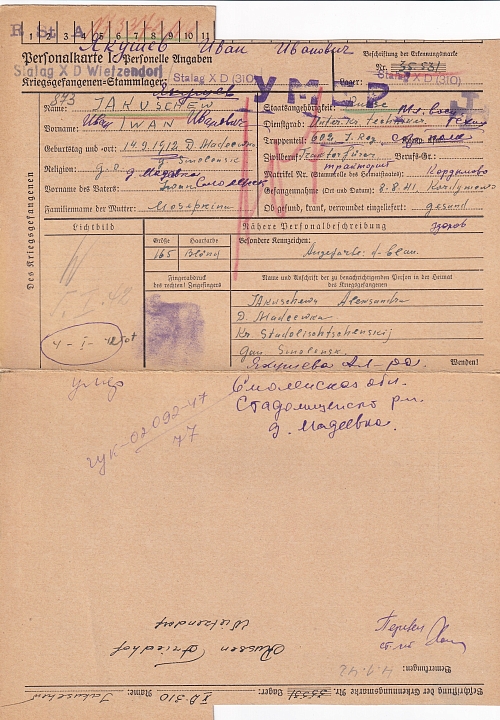 R St A
1 2 3 4 5 6 7 8 9 10 11
Якушев Иван Иванович
Personalkarte I: Personelle Angaben
Beschriftung der Erkennungsmarke
Stalag X D Wietzendorf
Stalag X D (310)
Nr. 35531
Kriegsgefangenen-Stammlager:
Lager: Stalag X D (310)
УМЕР
Des Kriegsgefangenen
Name: JAKUSCHEW
Staatsangehörigkeit: Russe
Иван Иванович
Vorname: IWAN
Dienstgrad:
Truppenteil: 602 J. Reg.
Geburtstag und -ort: 14.9.1912 D. Madeewka
Smolensk
Zivilberuf: Berufs-Gr.:
транспорт
Religion: g. o. д. Мадеевка
Matrikel Nr. (Stammrolle des Heimatstaates):
Vorname des Vaters: Iwan Смоленск
Gefangennahme (Ort und Datum): 8.8.41
Familienname der Mutter:
Ob gesund, krank, verwundet eingeliefert: gesund
здоров
Lichtbild
Nähere Personalbeschreibung
Größe Haarfarbe
Besondere Kennzeichen:
165 Blond
Augenfarbe: d. blau.
Fingerabdruck
des rechten Zeigefingers
Name und Anschrift der zu benachrichtigenden Person in der Heimat
des Kriegsgefangenen
JAkuschewa Aleksandra
D. Madeewka
Kr. Stadolischtschenskij
gau Smolensk.
4-I-42 tot
Wenden!
умер
Якушева Ал-ра.
Смоленская обл.
Стадолищенск. рн.
д. Мадеевка.
77
Перевел
Bemerkungen:
4.1.42
Russen Friedhof
Wietzendorf
Beschriftung der Erkennungsmarke Nr. 35531 Lager: XD-310 Name: Jakuschew